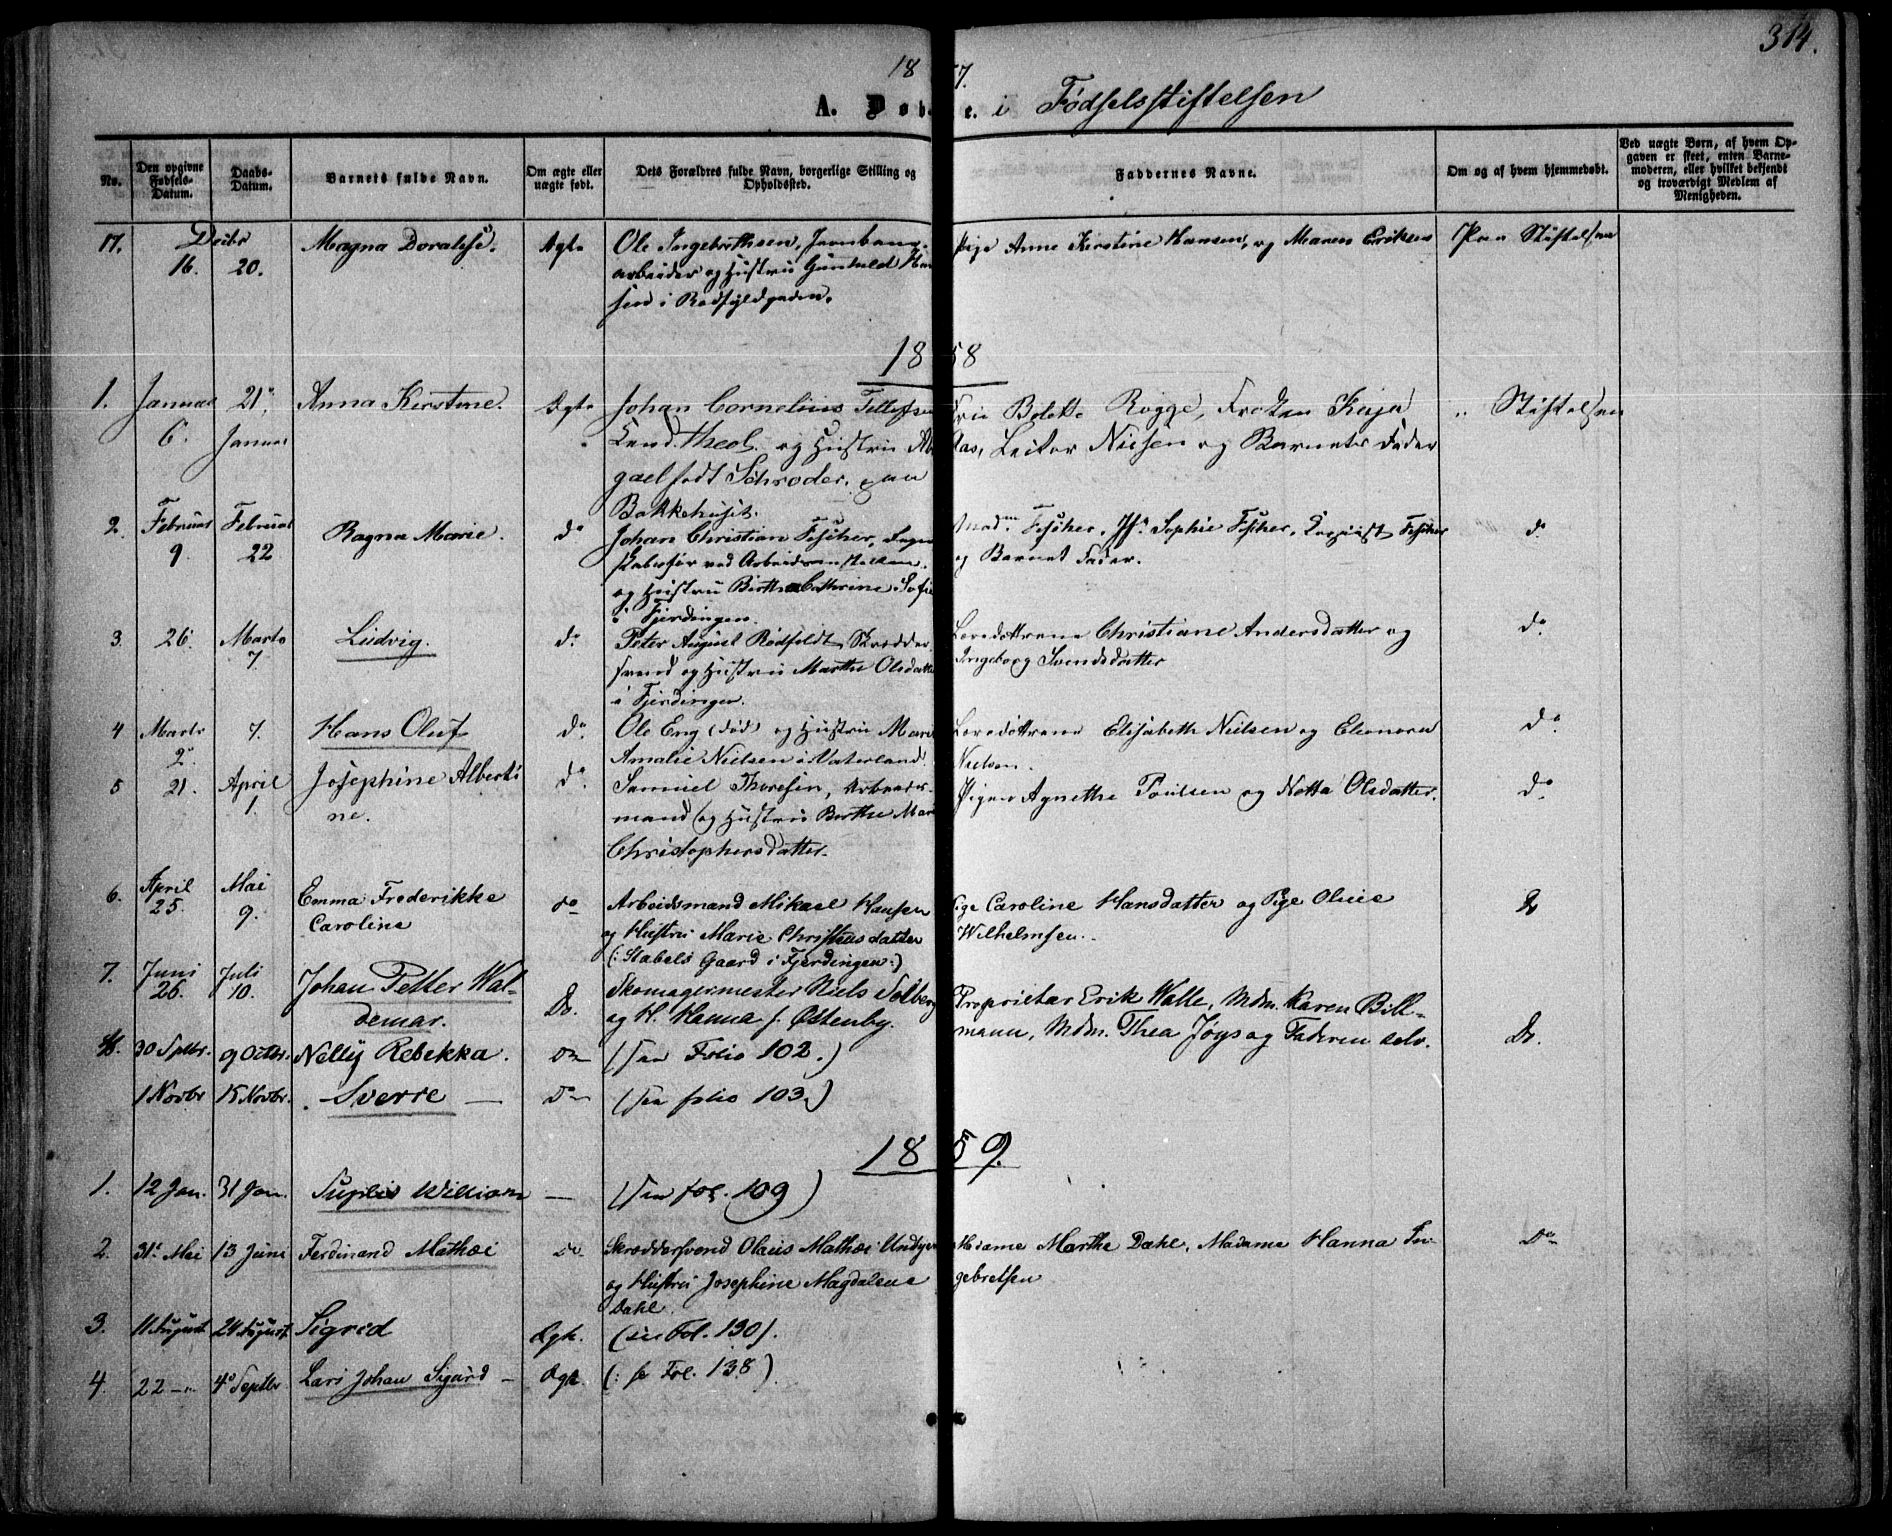 314.
18 57.
A. Døbte. i Fødselsstiftelsen
No.
Den opgivne Fødsels-Datum.
Daabs-Datum.
Barnets fulde Navn.
Om ægte eller uægte født.
Dets Forældres fulde Navn, borgerlige Stilling og Opholdssted.
Faddernes Navne.
Om og af hvem hjemmedøbt.
Ved uægte Børn, af hvem Opgaven er skeet, enten Barnemoderen, eller hvilket bekjendt og troværdigt Medlem af Menigheden.
17. Decbr 16. 20. Magna Doralise. Ægte Ole Ingebrethsen, Jernbane- Pige Anne Kirstine Hansen, og Maren Eriksen Paa Stiftelsen
arbeider og Hustru Gunhild
sen i Rødfyldgaden.
1858
1. Januar 21' Anna Kirstine. Ægte Johan Cornelius Tellefsen Bolette Rogge, Frøken Kaja " Stiftelsen
6. Januar Cand. theol. og Hustru Aas, Lector Nissen og Barnets Fader
gael født Schrøder. paa
Bakkehuset.
2. Februar 9 Februar 22 Ragna Marie. do Johan Christian Fischer, Madm Fischer, Jfr. Sophie Fischer, Fischer do
ved Arbeidsanstalten, og Barnet Fader.
og Hustru Birthe Cathrine Sofie
i Fjerdingen.
3. 26. Marts 7 Ludvig. do Peter August Rødfeldt, Skrædder Christiane Andersdatter og do
svend og Hustru Marthe Olsdatter Ingeborg Svendsdatter
i Fjerdingen.
4 Marts 2. 7. Hans Oluf do Ole Eng (død) og Hustru Marie Elisabeth Nielsen og Eleonora do
Amalie Nielsen i Vaterland Nielsen.
5 21. April 1. Josephine Alberti- do Samuel Thoresen, Arbeids- Piger Agnethe Poulsen og Netta Olsdatter. do
ne. mand og Hustru Berthe Marie
Christophersdatter.
6. April 25. Mai 9. Emma Frederikke do Arbeidsmand Mikael Hansen Pige Caroline Hansdatter og Pige Oluie Do
Caroline og Hustru Marie Christiansdatter Wilhelmsen.
(: Stabels Gaard i Fjerdingen :)
7. Juni 26. Juli 10. Johan Petter Wal- Do. Skomagermester Niels Solberg Proprietær Erik Walle, Mdm. Karen Bill-
demar. og H. Hanna f. Østenby. mann, Mdm. Thea Joys og Faderen selv. Do.
8. 30 Sptbr. 9 Octbr. Nelly Rebekka. do (See Folio 102.)
1 Novbr 15 Novbr. Sverre do (see folio 103.)
1859.
1. 12 Jan. 31 Jan. William — (See fol. 109)
2. 31' Mai 13 Juni Ferdinand Mathæi Do Skræddersvend Olaus Mathæi Madame Marthe Dahl, Madame Hanna In- Do
og Hustru Josephine Magdalene gebretsen
Dahl.
3. 11 August 24 August Sigrid Ægte. (see Fol. 130).
4. 22 — " 4' Septbr Lars Johan Sigurd — Ægte. (: se Fol. 138)